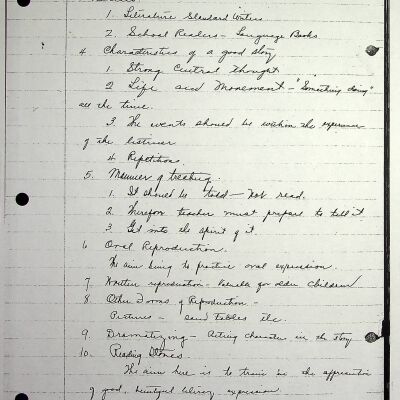 1. Literature Standard Writers
2. School Readers - Language Books
4. Characteristics of a good story
1. Strong Central Thought
2. Life and Movement - "Something doing"
all the time.
3. The events should be within the experience
of the listener
4. Repetitions.
5. Manner of treating.
1. It should be told - not read.
2. Therefore teacher must prepare to tell it
3. Get into the spirit of it.
6. Oral Reproduction.
The aim being to practice oral expression.
7. Written reproduction - Valuable for older children
8. Other Forms of Reproduction -
Pictures - sand tables etc.
9. Dramatizing - Acting character in the story
10. Reading Stories.
The aim here is to train in the appreciation
of good, beautiful literary expression.